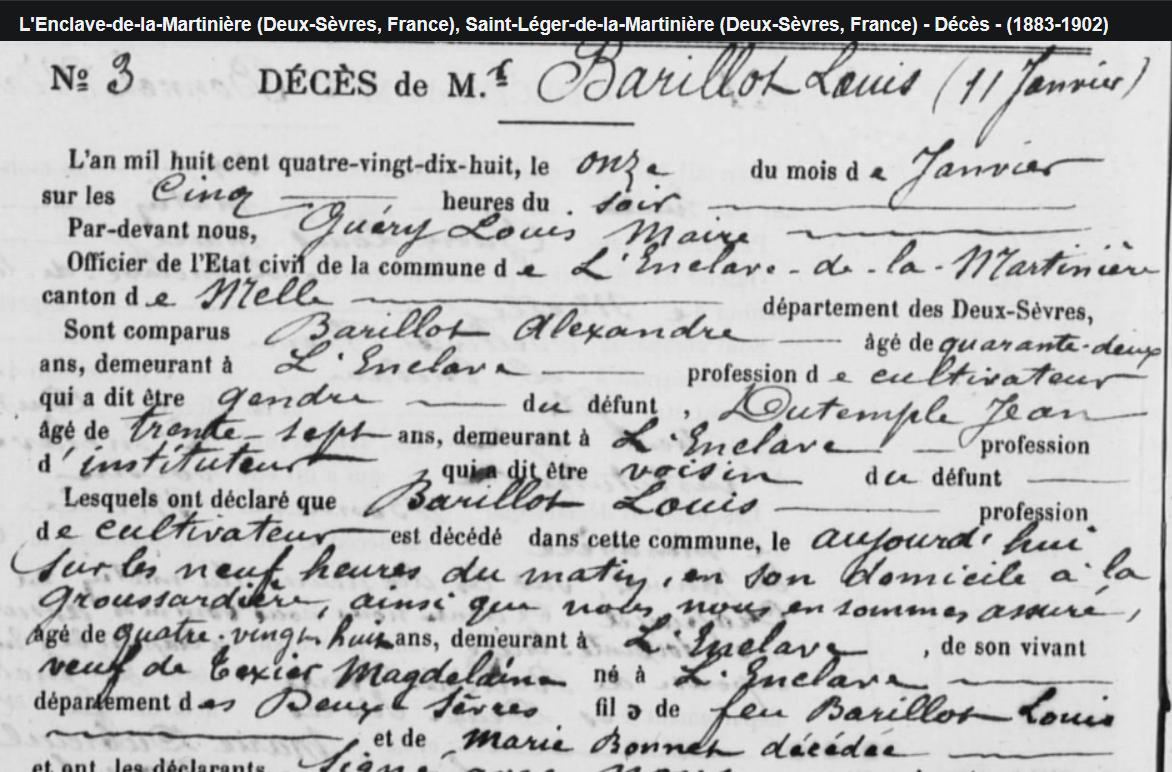 L'Enclave-de-la-Martinière (Deux-Sèvres, France), Saint-Léger-de-la-Martinière (Deux-Sèvres, France) - Décès - (1883-1902)
Nº 3 DÉCÈS de M.r Barillot Louis (11 Janvier)
L'an mil huit cent quatre-vingt-dix-huit, le onze du mois de Janvier
sur les Cinq heures du soir
Par-devant nous, Guéry Louis Maire
Officier de l'Etat civil de la commune de L'Enclave-de-la-Martinière
canton de Melle département des Deux-Sèvres,
Sont comparus Barillot Alexandre âgé de quarante-deux
ans, demeurant à L'Enclave profession de cultivateur
qui a dit être gendre du défunt, Dutemple Jean
âgé de trente-sept ans, demeurant à L'Enclave profession
d'instituteur qui a dit être voisin du défunt
Lesquels ont déclaré que Barillot Louis profession
de cultivateur est décédé dans cette commune, le aujourd'hui
sur les neuf heures du matin, en son domicile à la
Groussardière, ainsi que nous nous en sommes assuré,
âgé de quatre-vingt-huit ans, demeurant à L'Enclave, de son vivant
veuf de Texier Magdeleine né à L'Enclave
département des Deux Sèvres fils de feu Barillot Louis
et de Marie Bonnet décédée
et ont les déclarants signé avec nous